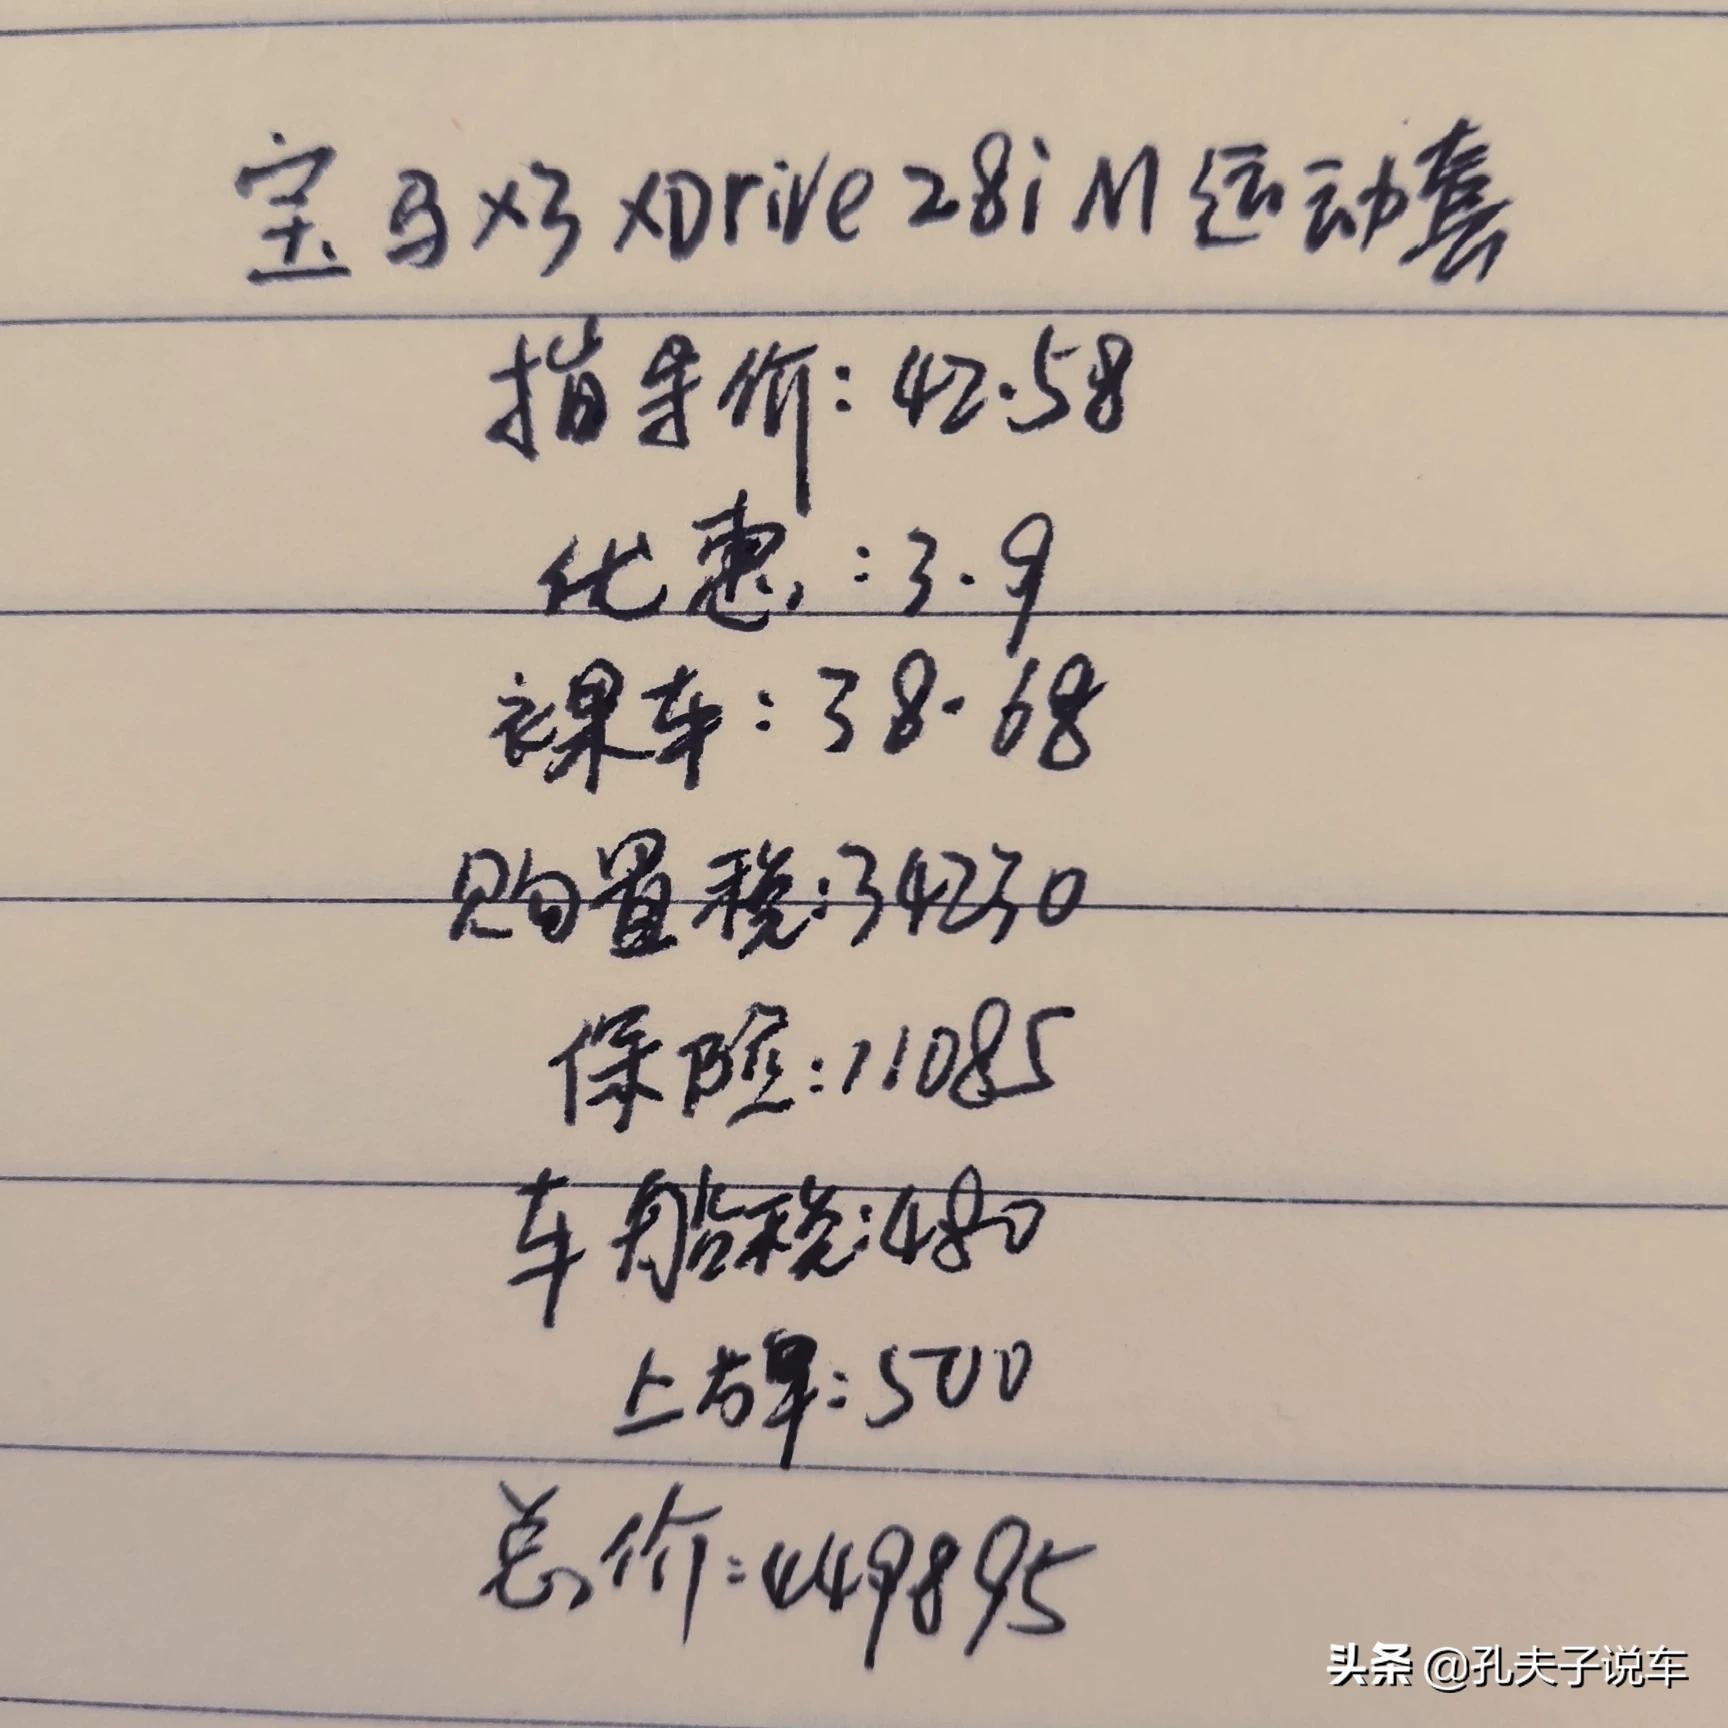 宝马X3 xDrive28i M运动套
指导价:42.58
优惠:3.9
裸车:38.68
购置税:34230
保险:11085
车船税:480
上牌:500
总价:449895
头条 @孔夫子说车